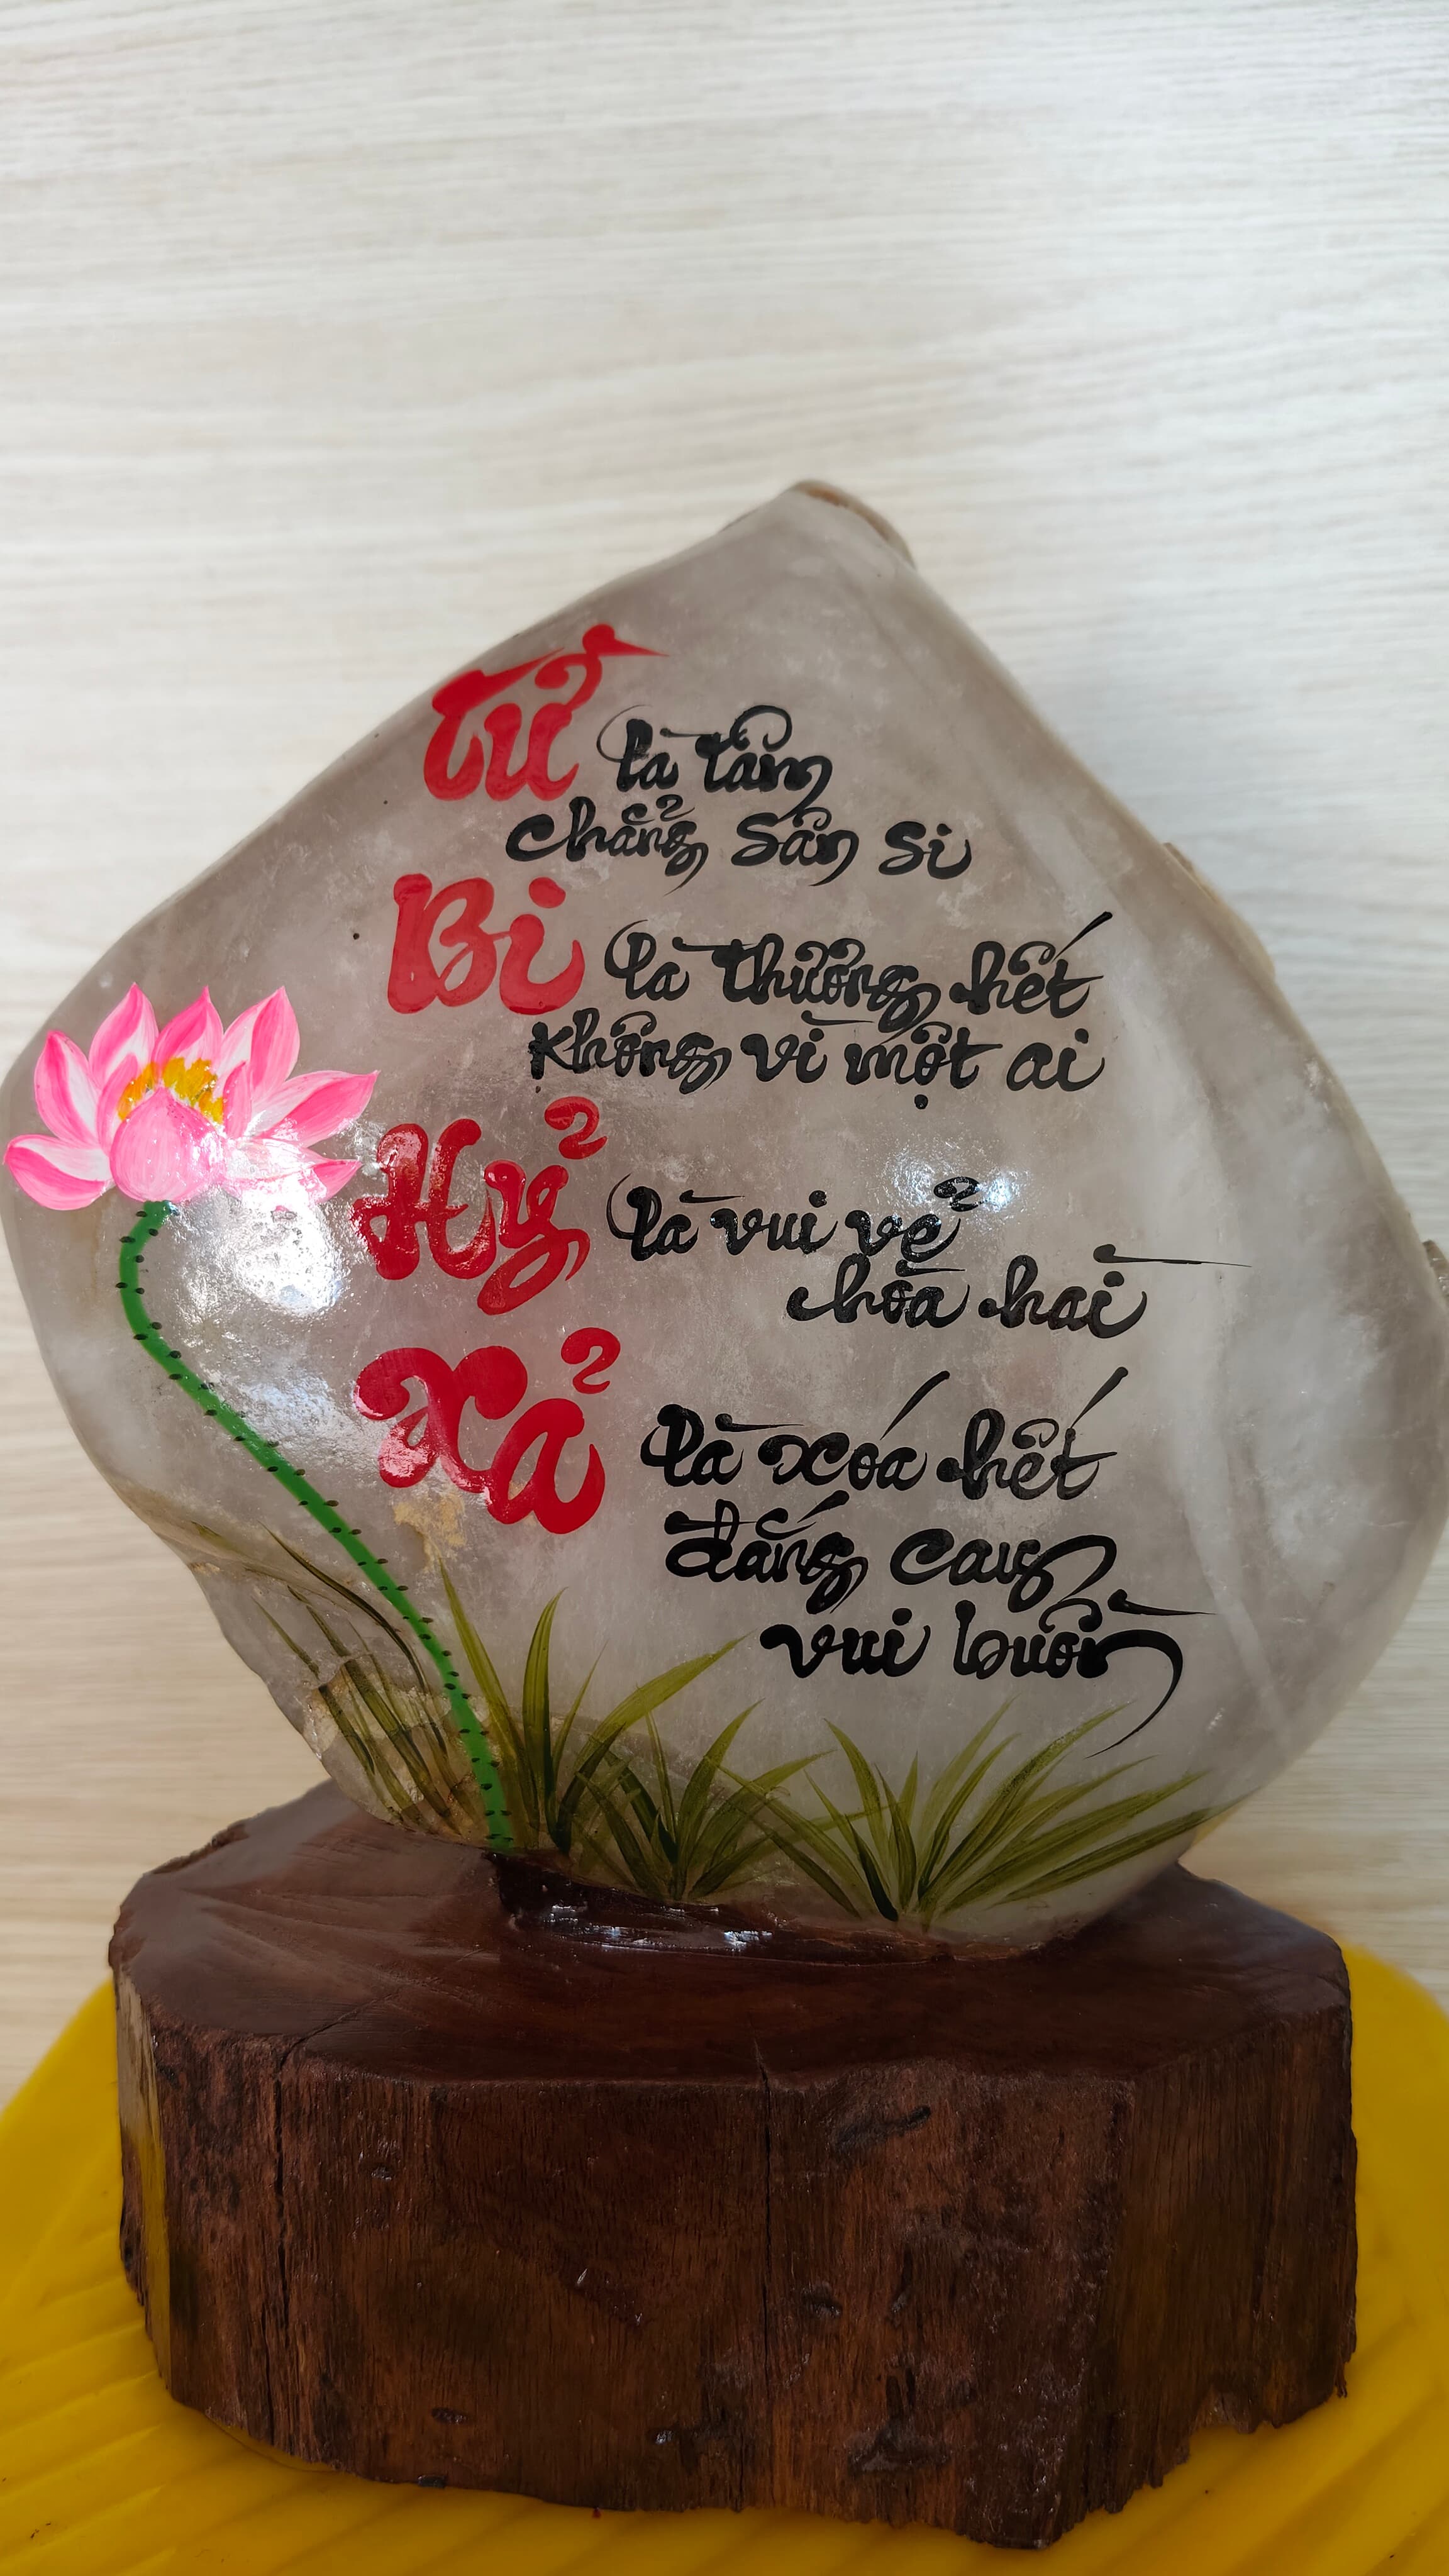 Từ là tâm
chẳng sân si
Bi là thương hết
không vì một ai
Hỷ là vui vẻ
hòa hài
Xả là xóa hết
đắng cay
vui buồn